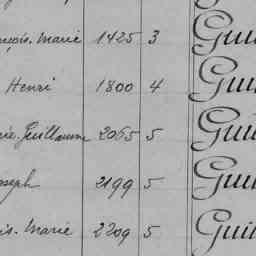 nçois-Marie 1425 3 Gui
Henri 1800 4 Gui
rie Guillaume 2065 5 Gui
oseph 2199 5 Gui
is-Marie 2209 5 Gui